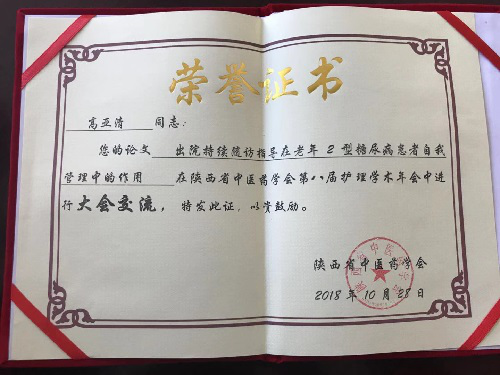 荣誉证书
高亚清 同志：
您的论文 出院持续随访指导在老年2型糖尿病患者自我
管理中的作用 在陕西省中医药学会第八届护理学术年会中进
行大会交流，特发此证，以资鼓励。
陕西省中医药学会
2018年10月28日